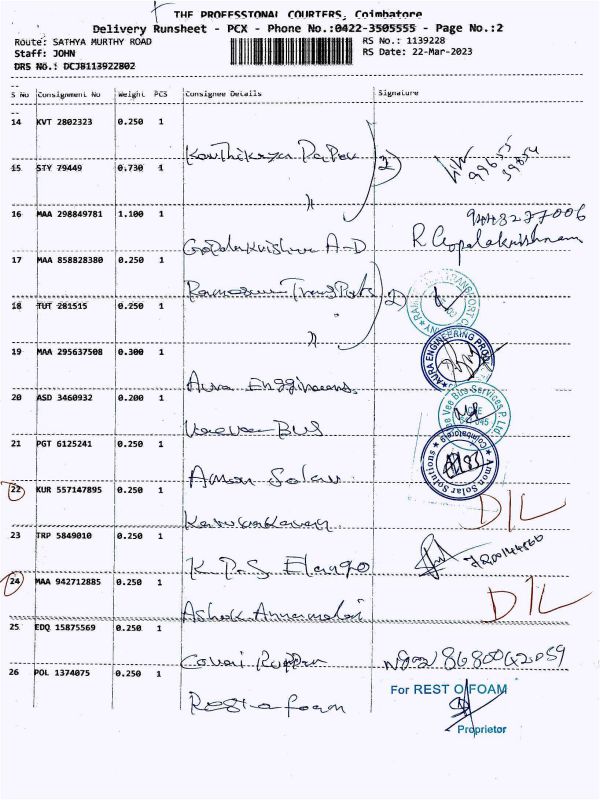 THE PROFESSIONAL COURIERS, Coimbatore
Delivery Runsheet - PCX - Phone No.:0422-3505555 - Page No.:2
Route: SATHYA MURTHY ROAD
RS No.: 1139228
Staff: JOHN
RS Date: 22-Mar-2023
DRS No.: DCJB113922802
--
S No Consignment No Weight PCS Consignee Details Signature
--
14 KVT 2802323 0.250 1
2)
15 STY 79449 0.730 1
〃
16 MAA 298849781 1.100 1
Gopalakrishna A-D R Gopalakrishnan
17 MAA 858828380 0.250 1
2)
18 TUT 281515 0.250 1
〃
19 MAA 295637508 0.300 1
Aura Enggineers AURA ENGINEERING
20 ASD 3460932 0.200 1
Veevee BUS Vee Vee Bus Services P. Ltd
21 PGT 6125241 0.250 1
Amon Solar Amon Solar Solutions ★ Coimbatore ★
22 KUR 557147895 0.250 1
D/L
23 TRP 5849010 0.250 1
K. P. S. Elango
24 MAA 942712885 0.250 1
Ashok Annamalai D/L
25 EDQ 15875569 0.250 1
Covai
26 POL 1374075 0.250 1
Rest o foam For REST O FOAM
Proprietor